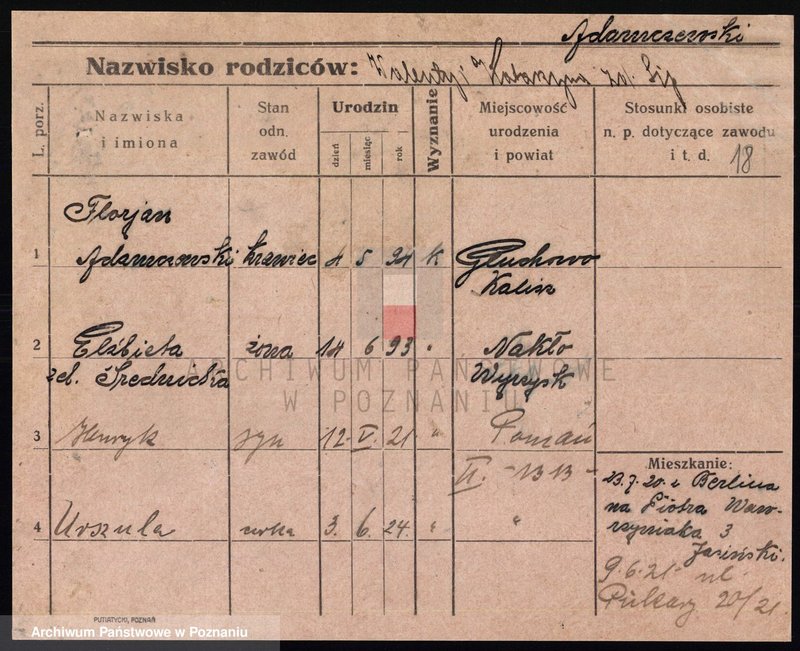 Adamczewski
Nazwisko rodziców: Walenty i Katarzyna zd.
L. porz.
Nazwiska i imiona
Stan odn. zawód
Urodzin
dzień miesiąc rok
Wyznanie
Miejscowość urodzenia i powiat
Stosunki osobiste n. p. dotyczące zawodu i t. d. 18
Florjan
1 Adamczewski krawiec 4 5 94 k Głuchowo
Kalisz
2 Elżbieta żona 14 6 93 " Nakło
zd. Średnicka Wyrzysk
3 Henryk syn 12. V. 21 " Poznań
II. -1313-
4 Urszula córka 3. 6. 24. " "
Mieszkanie:
23.7.20. z Berlina
na Piotra Waw-
rzyniaka 3
Jasiński.
9.6.21 ul.
20/21.
PUTIATYCKI, POZNAŃ
ARCHIWUM PAŃSTWOWE
W POZNANIU
Archiwum Państwowe w Poznaniu